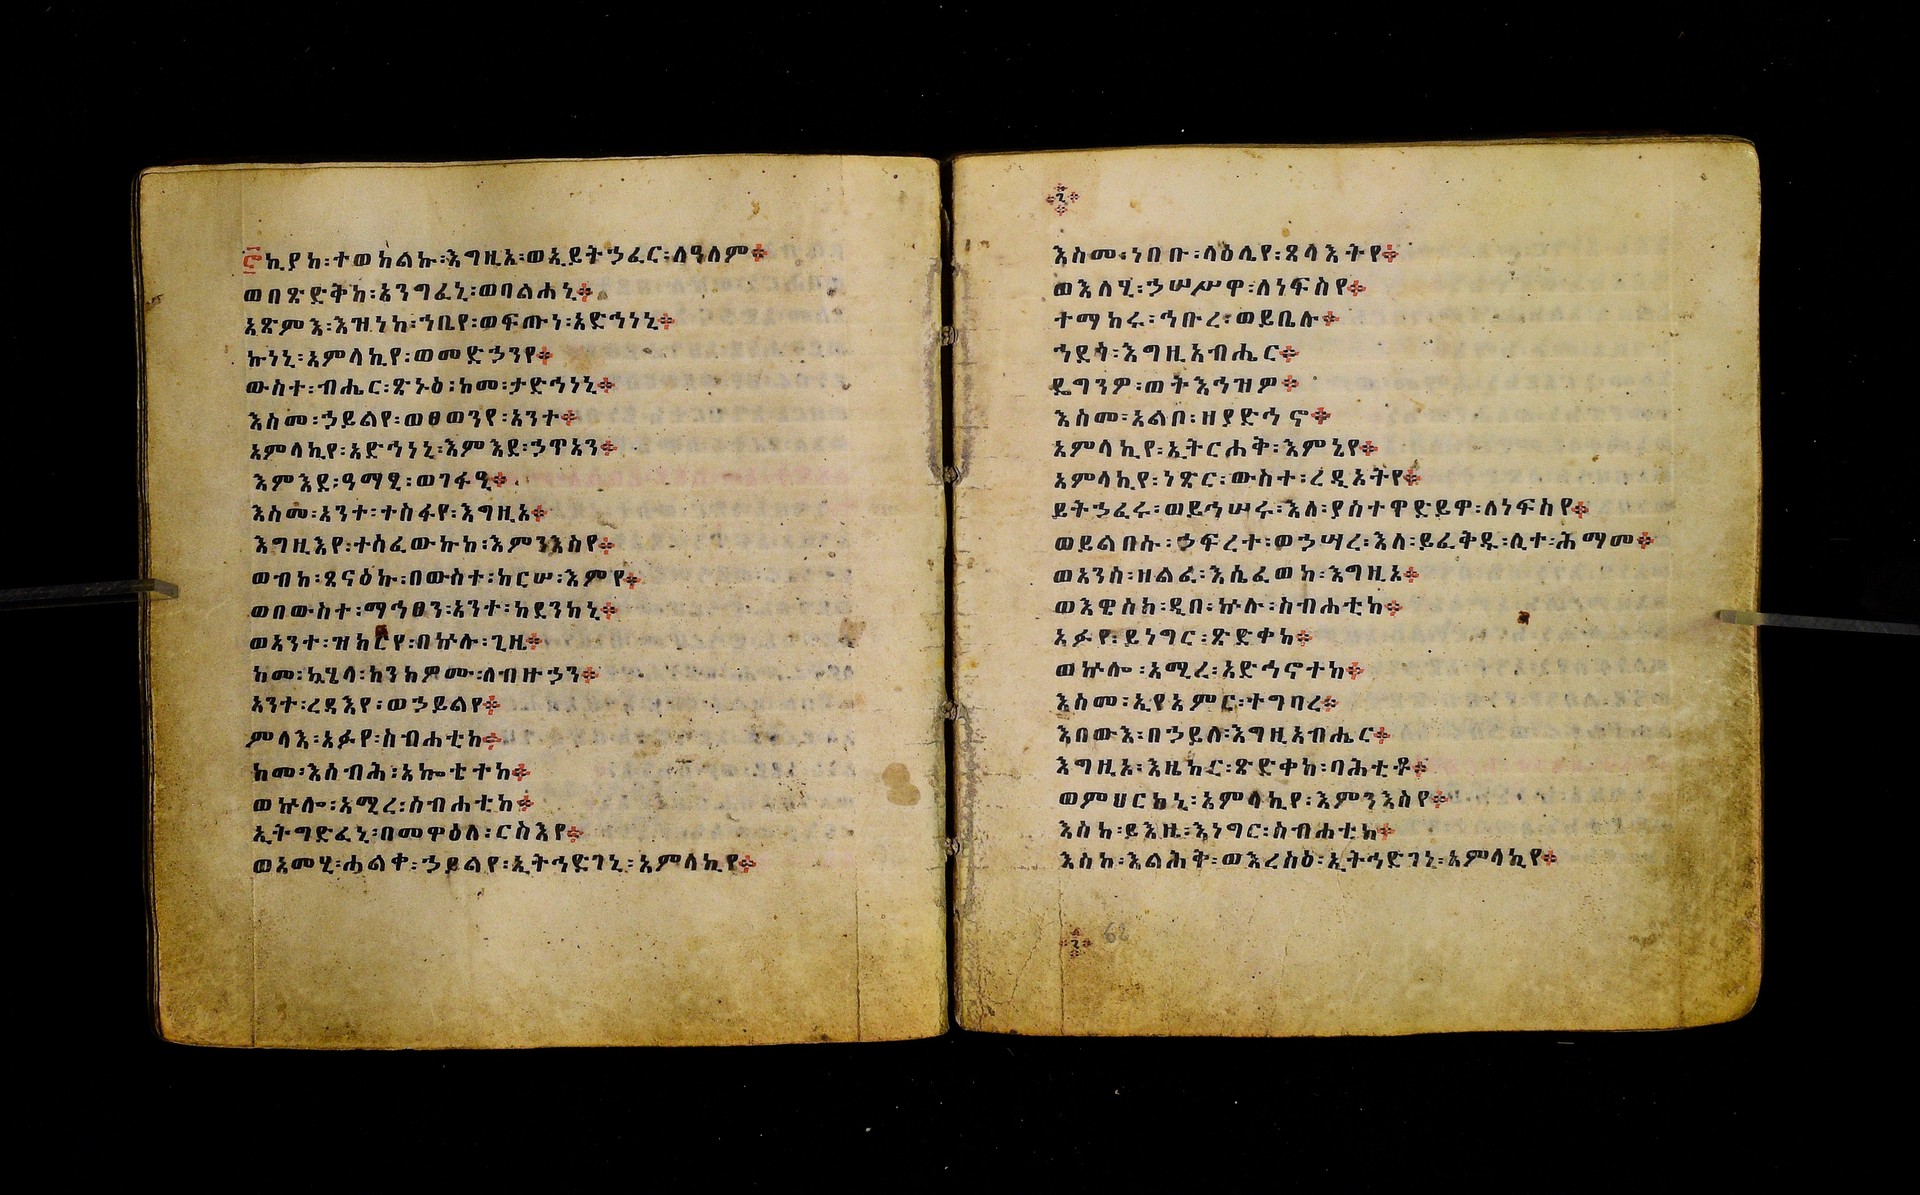 ፸ኪያከ፡ተወከልኩ፡እግዚአ፡ወኢይትኃፈር፡ለዓለም፨
ወበጽድቅከ፡አንግፈኒ፡ወባልሐኒ፨
አጽምእ፡እዝነከ፡ኀቤየ፡ወፍጡነ፡አድኅነኒ፨
ኩነኒ፡አምላኪየ፡ወመድኃንየ፨
ውስተ፡ብሔር፡ጽኑዕ፡ከመ፡ታድኅነኒ፨
እስመ፡ኃይልየ፡ወፀወንየ፡አንተ፨
አምላኪየ፡አድኅነኒ፡እምእደ፡ኃጥአን፨
እምእደ፡ዓማፂ፡ወገፋዒ፨
እስመ፡አንተ፡ተስፋየ፡እግዚአ፨
እግዚእየ፡ተሰፈውኩከ፡እምንእስየ፨
ወብከ፡ጸናዕኩ፡በውስተ፡ከርሠ፡እምየ፨
ወበውስተ፡ማኅፀን፡አንተ፡ከደንከኒ፨
ወአንተ፡ዝክርየ፡በኵሉ፡ጊዜ፨
ከመ፡ኳሄላ፡ከንክዎሙ፡ለብዙኃን፨
አንተ፡ረዳእየ፡ወኃይልየ፨
ምላእ፡አፉየ፡ስብሐቲከ፨
ከመ፡እሰብሕ፡አኰቴተከ፨
ወኵሎ፡አሚረ፡ስብሐቲከ፨
ኢትግድፈኒ፡በመዋዕለ፡ርስእየ፨
ወአመሂ፡ሐልቀ፡ኃይልየ፡ኢትኅድገኒ፡አምላኪየ፨
፯
እስመ፡ነበቡ፡ላዕሌየ፡ጸላእትየ፨
ወእለሂ፡ኃሠሥዋ፡ለነፍስየ፨
ተማከሩ፡ኅቡረ፡ወይቤሉ፨
ኀደጎ፡እግዚአብሔር፨
ዴግንዎ፡ወትእኅዝዎ፨
እስመ፡አልቦ፡ዘያድኅኖ፨
አምላኪየ፡ኢትርሐቅ፡እምኔየ፨
አምላኪየ፡ነጽር፡ውስተ፡ረዲኦትየ፨
ይትኃፈሩ፡ወይኅሠሩ፡እለ፡ያስተዋድይዋ፡ለነፍስየ፨
ወይልበሱ፡ኃፍረተ፡ወኃሣረ፡እለ፡ይፈቅዱ፡ሊተ፡ሕማመ፨
ወአንሰ፡ዘልፈ፡እሴፈወከ፡እግዚአ፨
ወእዌስክ፡ዲበ፡ኵሉ፡ስብሐቲከ፨
አፉየ፡ይነግር፡ጽድቀከ፨
ወኵሎ፡አሚረ፡አድኅኖተከ፨
እስመ፡ኢየአምር፡ተግባረ፨
እበውእ፡በኃይለ፡እግዚአብሔር፨
እግዚአ፡እዜከር፡ጽድቀከ፡ባሕቲቶ፨
ወምህርከኒ፡አምላኪየ፡እምንእስየ፨
እስከ፡ይእዜ፡እነግር፡ስብሐቲከ፨
እስከ፡እልሕቅ፡ወእረስዕ፡ኢትኅድገኒ፡አምላኪየ፨
፯ 62